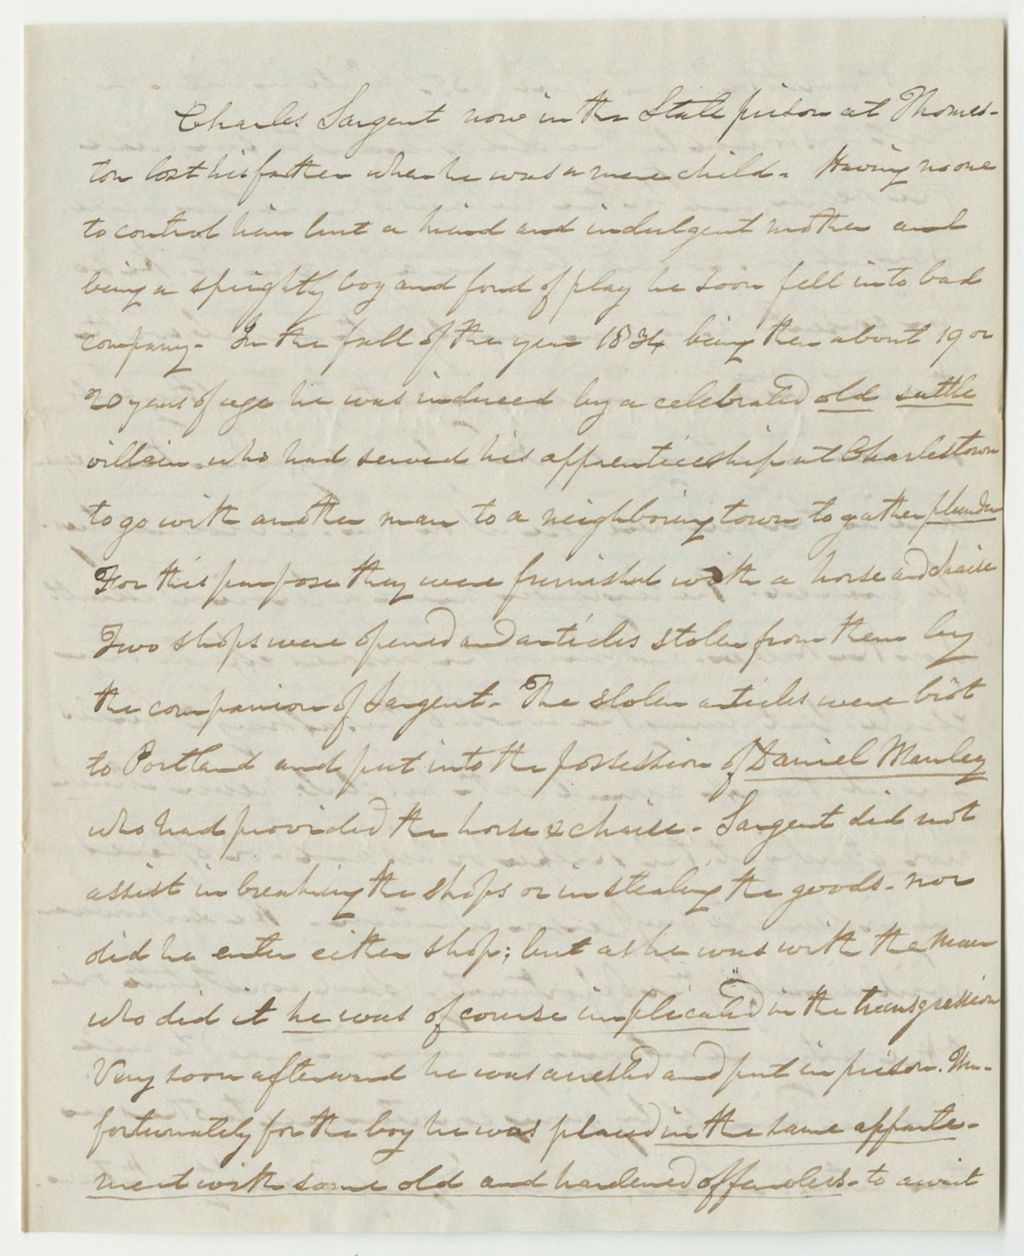 Charles Sargent now in the State prison at Thomas-
ton lost his father when he was a mere child. Having no one
to control him but a kind and indulgent mother and
being a sprightly boy and fond of play he soon fell into bad
company. In the fall of the year 1834 being then about 19 or
20 years of age he was induced by a celebrated old suttle
villain who had served his apprenticeship at Charlestown
to go with another man to a neighboring town to gather plunder
For this purpose they were furnished with a horse and chaise
Two shops were opened and articles stolen from them by
the companion of Sargent. The stolen articles were brot
to Portland and put into the possession of Daniel Manley
who had provided the horse & chaise. Sargent did not
assist in breaking the shops or in stealing the goods. nor
did he enter either shop; but as he was with the man
who did it he was of course implicated in the transgression
Very soon afterward he was arrested and put in prison. Un-
fortunately for the boy he was placed in the same apparte-
ment with some old and hardened offenders. to await